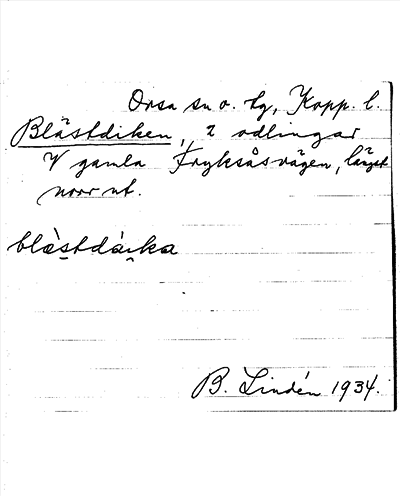 Orsa sn o. tg, Kopp. l.
Blästdiken, 2 odlingar
V gamla Fryksåsvägen, längst
norr ut.
blæ̀stdàika
B. Lindén 1934.